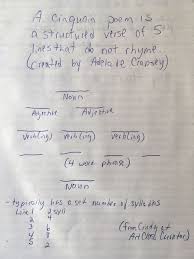 A Cinquain poem is
a structured verse of 5
lines that do not rhyme.
(Created by Adelaide Crapsey)
Noun
Adjective Adjective
Verb(ing) Verb(ing) Verb(ing)
(4 word phrase)
Noun
- typically has a set number of syllables
Line 1 2 syll
2 4
3 6
4 8
5 2
(from Cindy at
Art Card Creator)